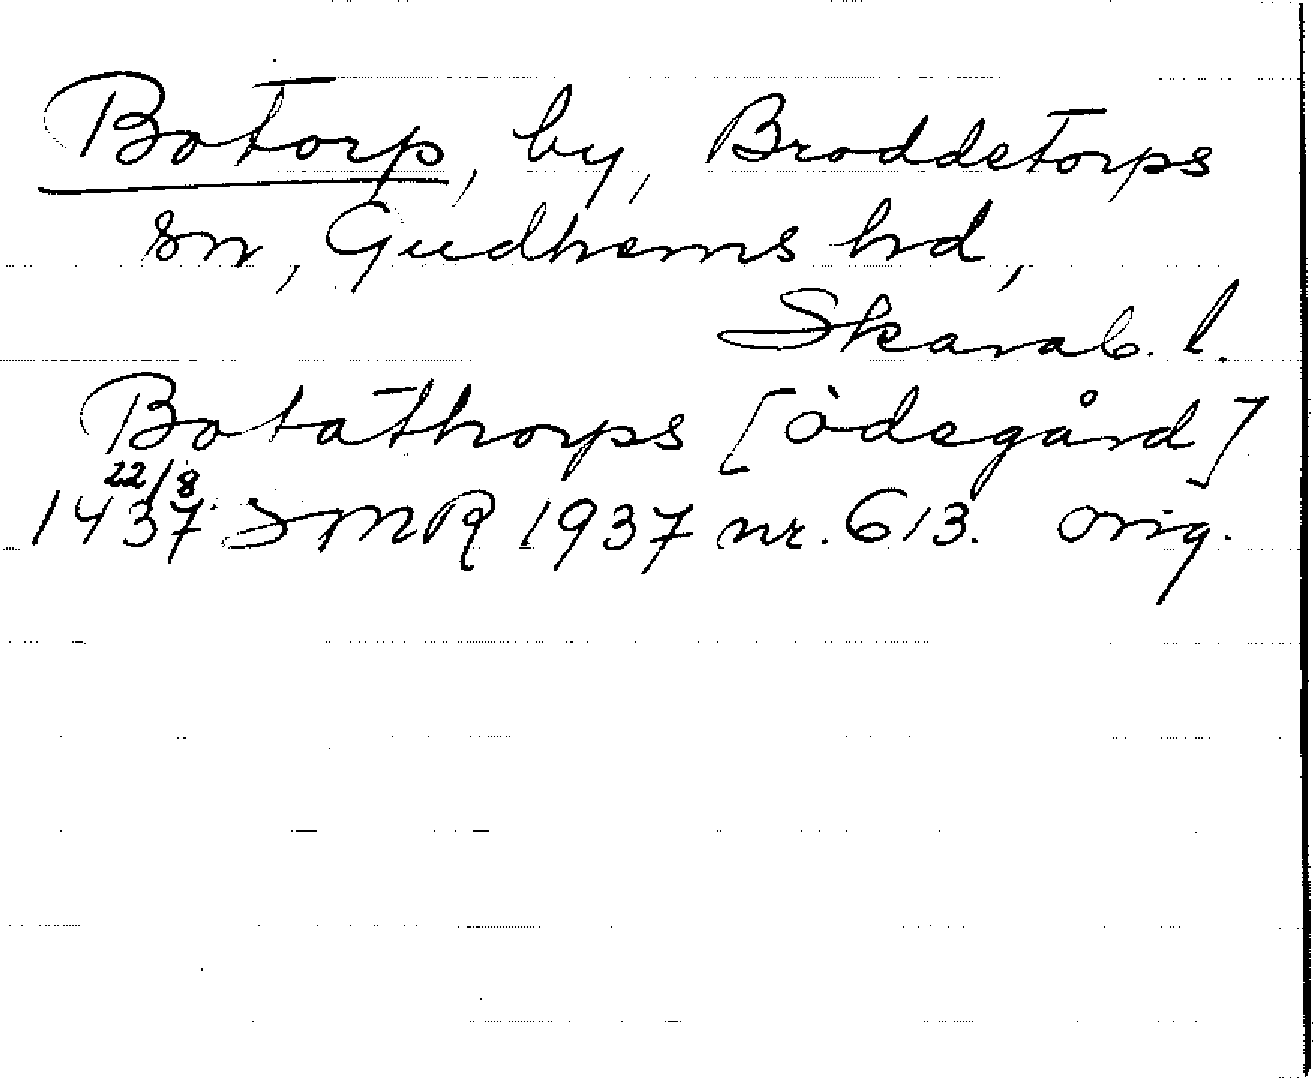 Botorp, by, Broddetorps
sn, Gudhems hd,
Skarab. l.
Botathorps [ödegård]
22/8
1437 SMR 1937 nr. 613. Orig.